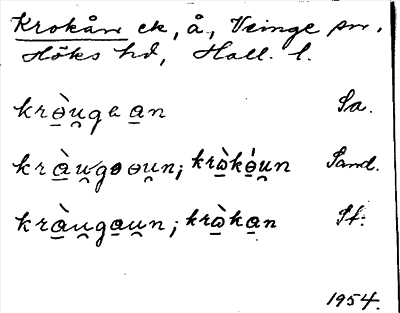 Krokån ek, å, Veinge sn,
Höks hd, Hall. l.
krɵ̀u̯gaan Sa.
krɑ̀u̯gɵɵu̯n; krɷ̀kɵ̀u̯n Sand.
krɑ̀u̯gɑu̯n; krɷ̀kɑn St.
1954.